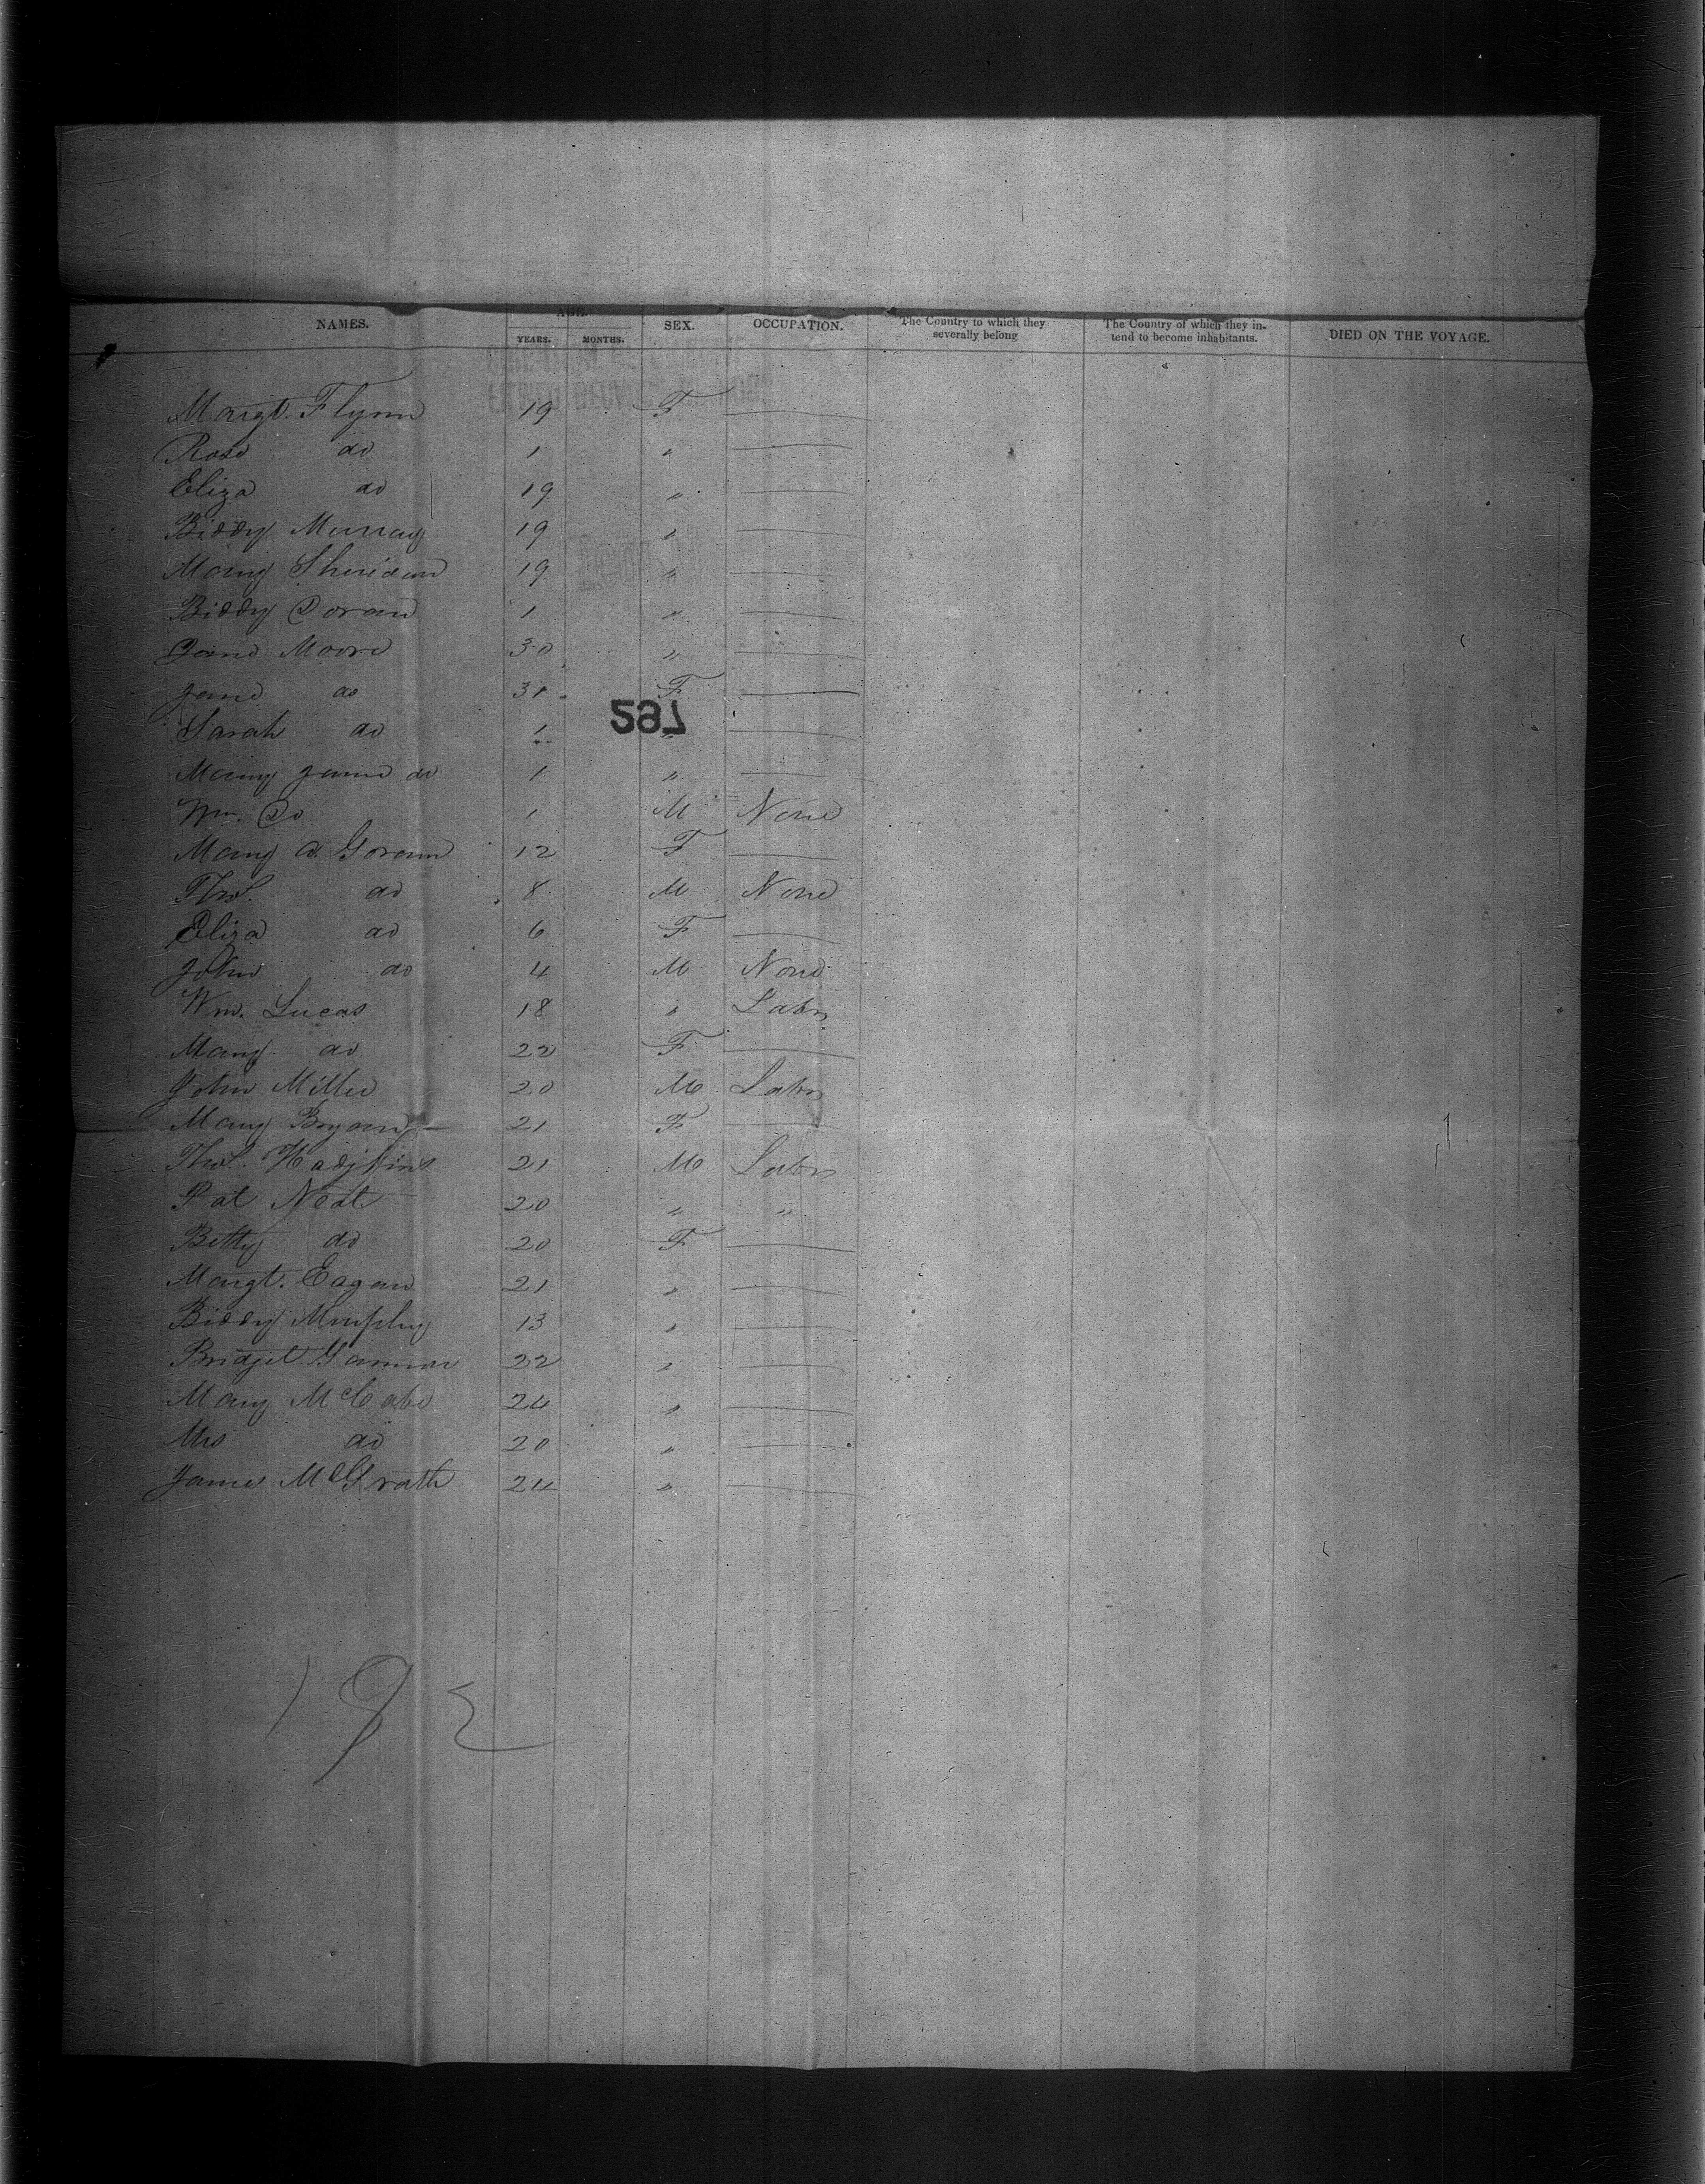 NAMES. AGE. SEX. OCCUPATION. The Country to which they severally belong The Country of which they intend to become inhabitants. DIED ON THE VOYAGE.
YEARS. MONTHS.
Margt. Flynn 19 F —
Rose do 1 " —
Eliza do 19 " —
Biddy Murray 19 " —
Mary Sheridan 19 " —
Biddy Doran 1 " —
Jane Moore 30 " —
Jane do 31 F —
267
Sarah do 1 " —
Mary Jane do 1 " —
Wm. Do 1 M None
Mary A. Goram 12 F —
Thos. do 8 M None
Eliza do 6 F —
John do 4 M None
Wm. Lucas 18 " Labr
Mary do 22 F —
John Miller 20 M Labr
Mary Bryan 21 F —
Thos. 21 M Labr
Pat Neat 20 " "
Betty do 20 F —
Margt. Eagan 21 " —
Biddy Murphy 13 " —
Bridget 22 " —
Mary McCabe 24 " —
Mrs do 20 " —
James McGrath 24 " —
192